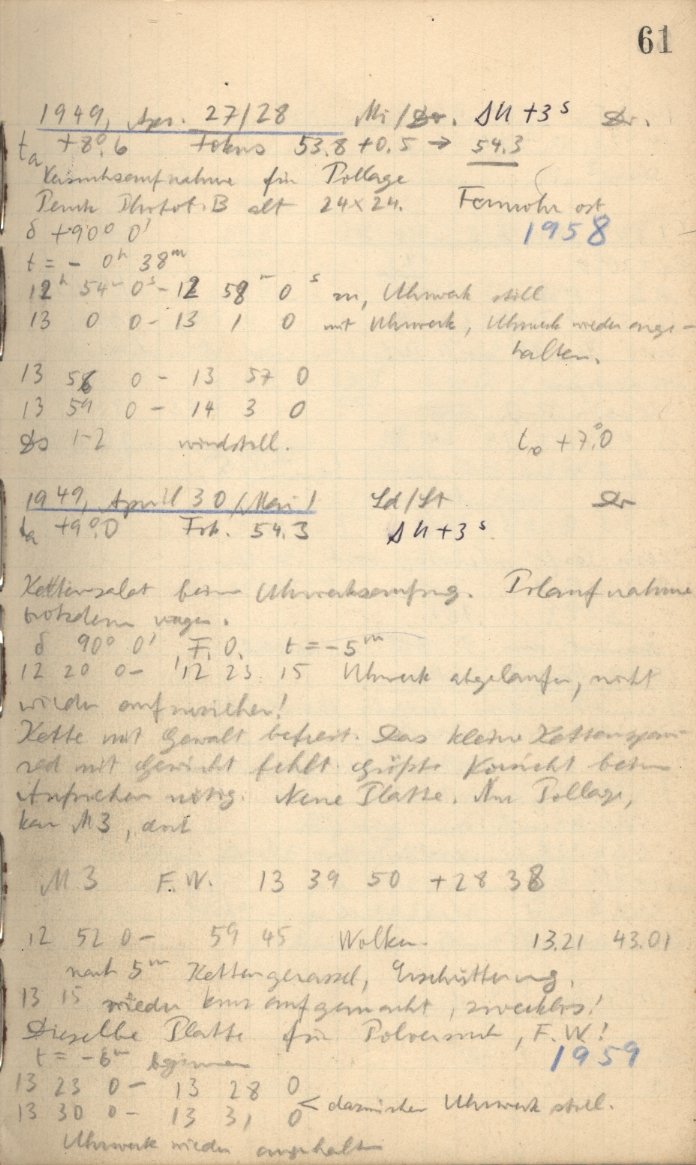 61
1949, Apr. 27/28 Mi/Do. ΔU +3ˢ Dr.
tₐ +8°.6 Fokus 53.8 +0.5 → 54.3
Versuchsaufnahme für Pollage
Perutz Photot. B alt 24×24. Fernrohr ost
δ +90° 0' 1958
t = - 0ʰ 38ᵐ
12ʰ 54ᵐ 0ˢ - 12 58ᵐ 0ˢ Uhrwerk still
13 0 0 - 13 1 0 mit Uhrwerk, Uhrwerk wieder ange-
halten.
13 56 0 - 13 57 0
13 59 0 - 14 3 0
Ds 1-2 windstill. +7°.0
1949, April 30/Mai 1 Sd/St Dr
tₐ +9°.0 Fok. 54.3 ΔU +3ˢ
Kettensalat beim Uhrwerksaufzug. Polaufnahme
trotzdem wagen.
δ 90° 0' F.O. t = -5ᵐ
12 20 0 - 12 23 15 Uhrwerk abgelaufen, nicht
wieder aufzuziehen!
Kette mit Gewalt befreit. Das kleine Kettenspann-
rad mit Gewicht fehlt. Größte Vorsicht beim
Aufziehen nötig. Neue Platte. Nur Pollage,
kein M3, dort
M3 F.W. 13 39 50 +28 38
12 52 0 - 59 45 Wolken. 13.21 43.01
nach 5ᵐ Kettengerassel, Erschütterung.
13 15 wieder kurz aufgemacht, zwecklos!
Dieselbe Platte für Polversuch, F.W.!
t = -6ᵐ beginnen 1959
13 23 0 - 13 28 0
13 30 0 - 13 31 0 < dazwischen Uhrwerk still.
Uhrwerk wieder angehalten